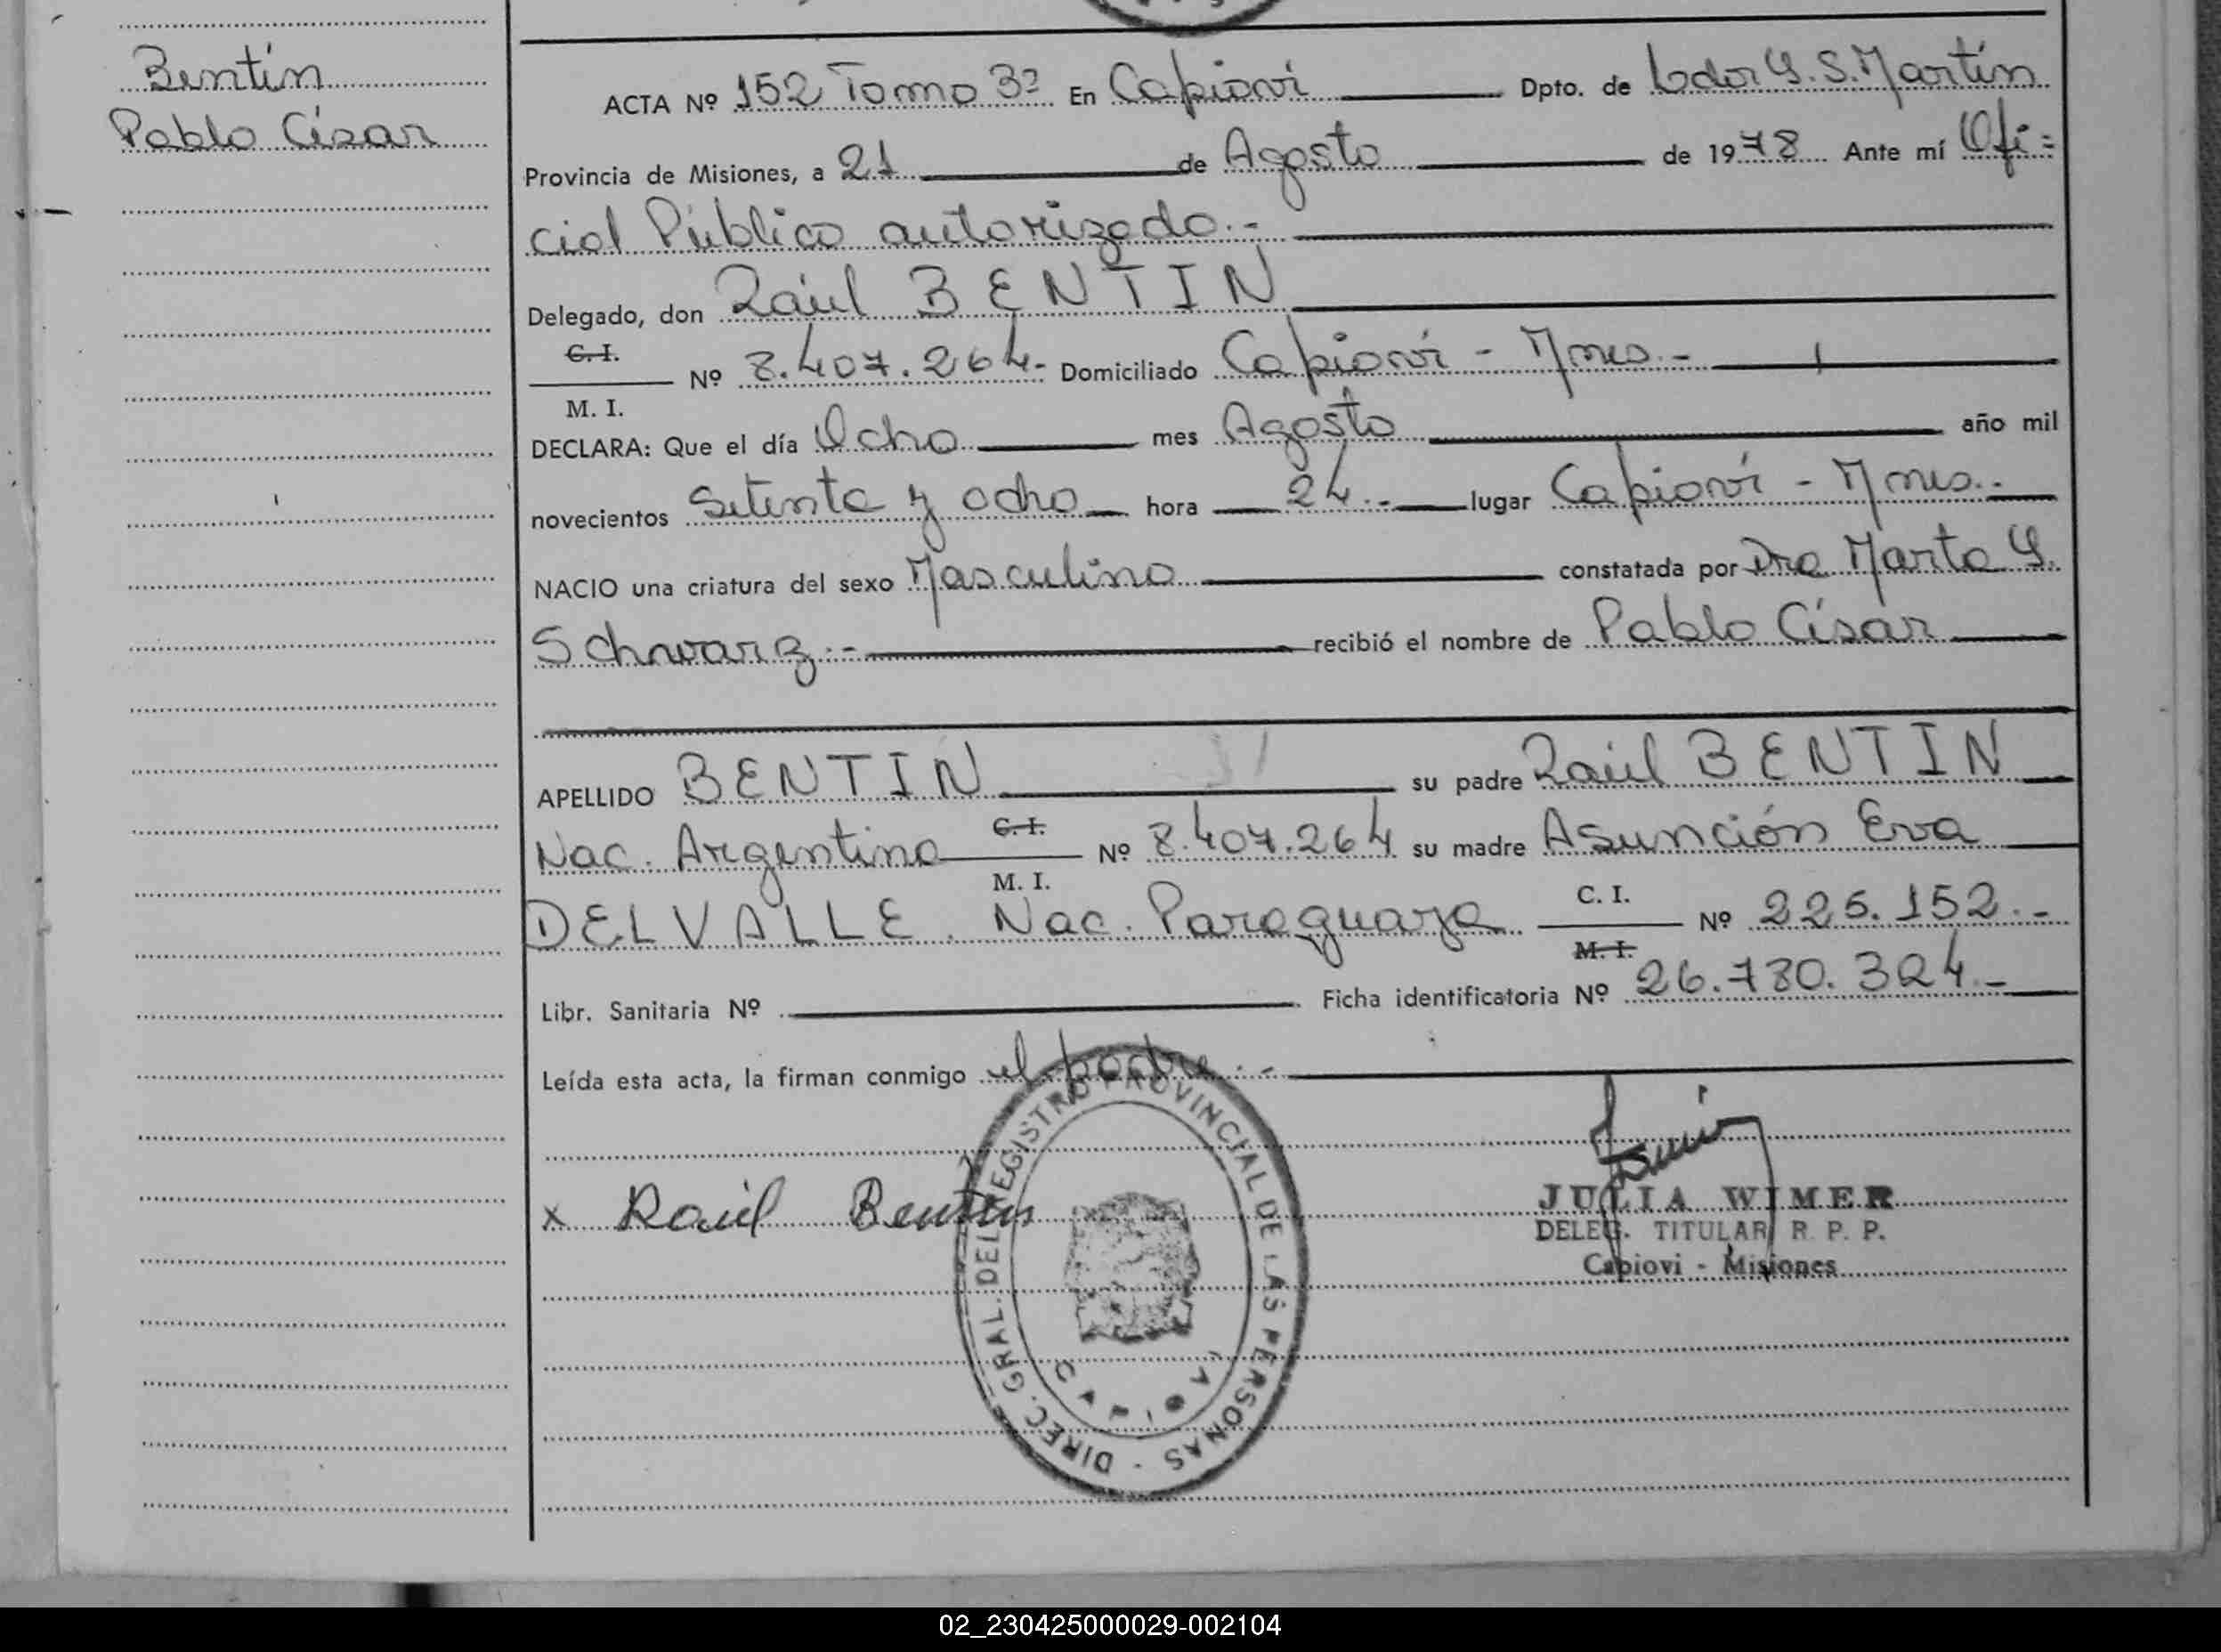 Bentín
Pablo César
ACTA Nº 152 Tomo 3º En Capioví Dpto. de Ldor G. S. Martín
Provincia de Misiones, a 21 de Agosto de 1978 Ante mí Ofi=
cial Público autorizado.-
Delegado, don Raúl BENTIN
C. I.
M. I.
Nº 8.407.264.- Domiciliado Capioví - Mnes.-
DECLARA: Que el día Ocho mes Agosto año mil
novecientos Setenta y ocho hora 24.- lugar Capioví - Mnes.-
NACIO una criatura del sexo Masculino constatada por Dra Marta G.
Schwarz.- recibió el nombre de Pablo César
APELLIDO BENTIN su padre Raúl BENTIN
Nac. Argentina C. I.
M. I.
Nº 8.407.264 su madre Asunción Eva
DELVALLE. Nac. Paraguaya C. I.
M. I.
Nº 225.152.-
Libr. Sanitaria Nº Ficha identificatoria Nº 26.780.324.-
Leída esta acta, la firman conmigo el padre.-
x Raúl Bentin
DIREC. GRAL. DEL REGISTRO PROVINCIAL DE LAS PERSONAS -
CAPIOVI
JULIA WIMER
DELEG. TITULAR R. P. P.
Capiovi - Misiones
02_230425000029-002104